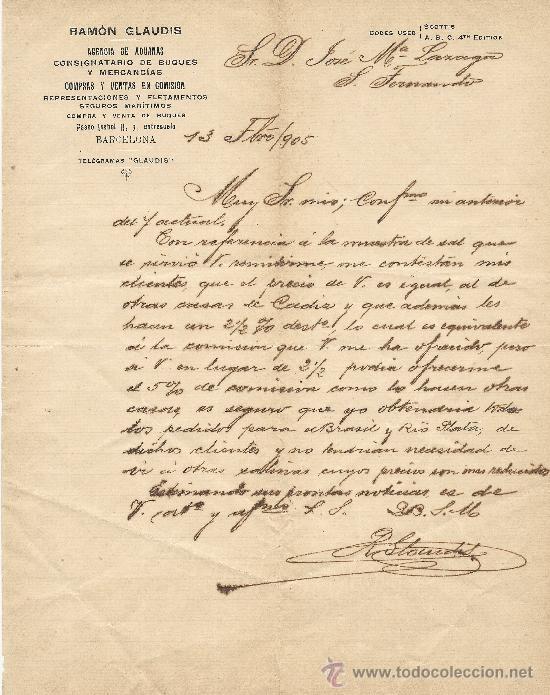 RAMÓN GLAUDIS
AGENCIA DE ADUANAS
CONSIGNATARIO DE BUQUES
Y MERCANCÍAS
COMPRAS Y VENTAS EN COMISIÓN
REPRESENTACIONES Y FLETAMENTOS
SEGUROS MARÍTIMOS
COMPRA Y VENTA DE BUQUES
Paseo Isabel II, entresuelo
BARCELONA
TELÉGRAMAS "GLAUDIS"
CODES USED
SCOTT'S
A. B. C. 4TH EDITION
Sr. D. José Mª
S. Fernando
13 Fbre/905
Muy Sr. mio; Confmo mi anterior
del 7 actual.
Con referencia á la muestra de sal que
se sirvió V. remitirme, me contestan mis
clientes, que el precio de V. es igual al de
otras casas de Cadiz y que además les
hacen un 2 1/2 % destº, lo cual es equivalente
á la comisión que V. me ha ofrecido, pero
si V en lugar de 2 1/2 podia ofrecerme
el 5% de comisión como lo hacen otras
casas, es seguro que yo obtendria todos
los pedidos para Brasil y Rio Plata, de
dichos clientes y no tendrian necesidad de
ir á otras salinas cuyos precios son mas reducidos
Estimando sus prontas noticias, es de
V. attº y afmo S. S. Q.B.S.M
R. Glaudis
todocoleccion
www.todocoleccion.net